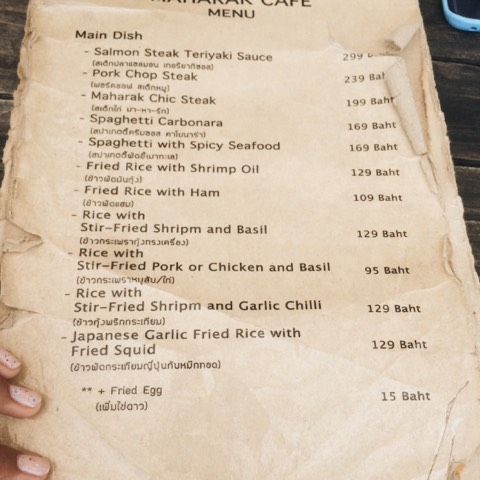 MAHARAK CAFE
MENU
Main Dish
- Salmon Steak Teriyaki Sauce 299 B
(สเต็กปลาแซลมอน เทอริยากิซอส)
- Pork Chop Steak 239 Baht
(พอร์คชอพ สเต็กหมู)
- Maharak Chic Steak 199 Baht
(สเต็กไก่ มา-หา-รัก)
- Spaghetti Carbonara 169 Baht
(สปาเกตตี้ครีมซอส คาโบนาร่า)
- Spaghetti with Spicy Seafood 169 Baht
(สปาเกตตี้ผัดขี้เมาทะเล)
- Fried Rice with Shrimp Oil 129 Baht
(ข้าวผัดมันกุ้ง)
- Fried Rice with Ham 109 Baht
(ข้าวผัดแฮม)
- Rice with
Stir-Fried Shripm and Basil 129 Baht
(ข้าวกระเพรากุ้งทรงเครื่อง)
- Rice with
Stir-Fried Pork or Chicken and Basil 95 Baht
(ข้าวกระเพราหมูสับ/ไก่)
- Rice with
Stir-Fried Shripm and Garlic Chilli 129 Baht
(ข้าวกุ้งพริกกระเทียม)
- Japanese Garlic Fried Rice with
Fried Squid 129 Baht
(ข้าวผัดกระเทียมญี่ปุ่นกับหมึกทอด)
** + Fried Egg 15 Baht
(เพิ่มไข่ดาว)